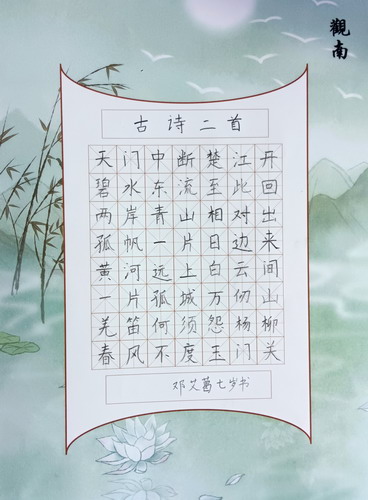 觀南
古诗二首
天门中断楚江开
碧水东流至此回
两岸青山相对出
孤帆一片日边来
黄河远上白云间
一片孤城万仞山
羌笛何须怨杨柳
春风不度玉门关
邓艾葛七岁书